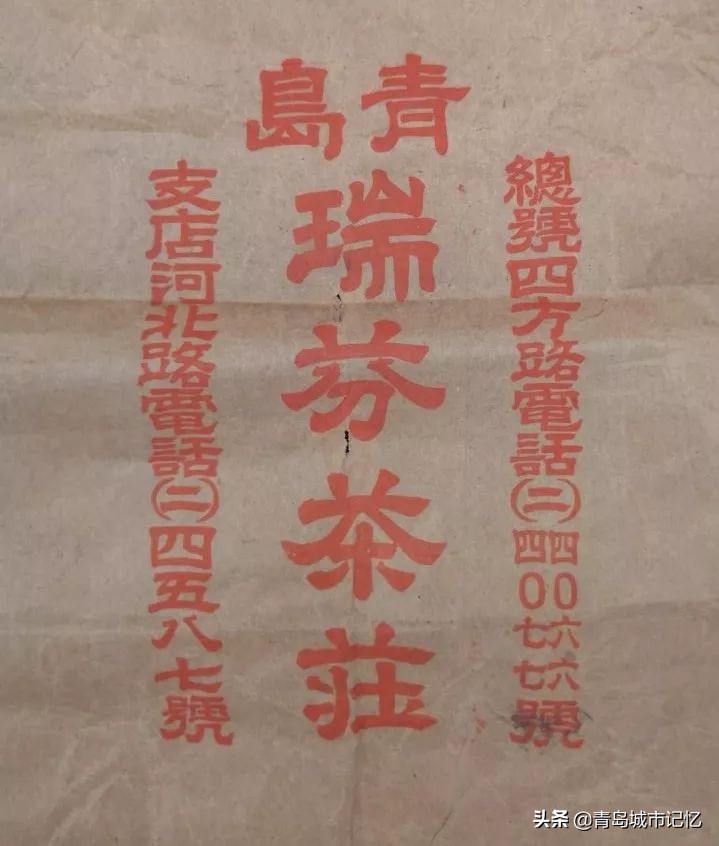 青島
瑞芬茶莊
總號四方路電話(二)四0六六
四0七七
號
支店河北路電話(二)四五八七號
头条 @青岛城市记忆